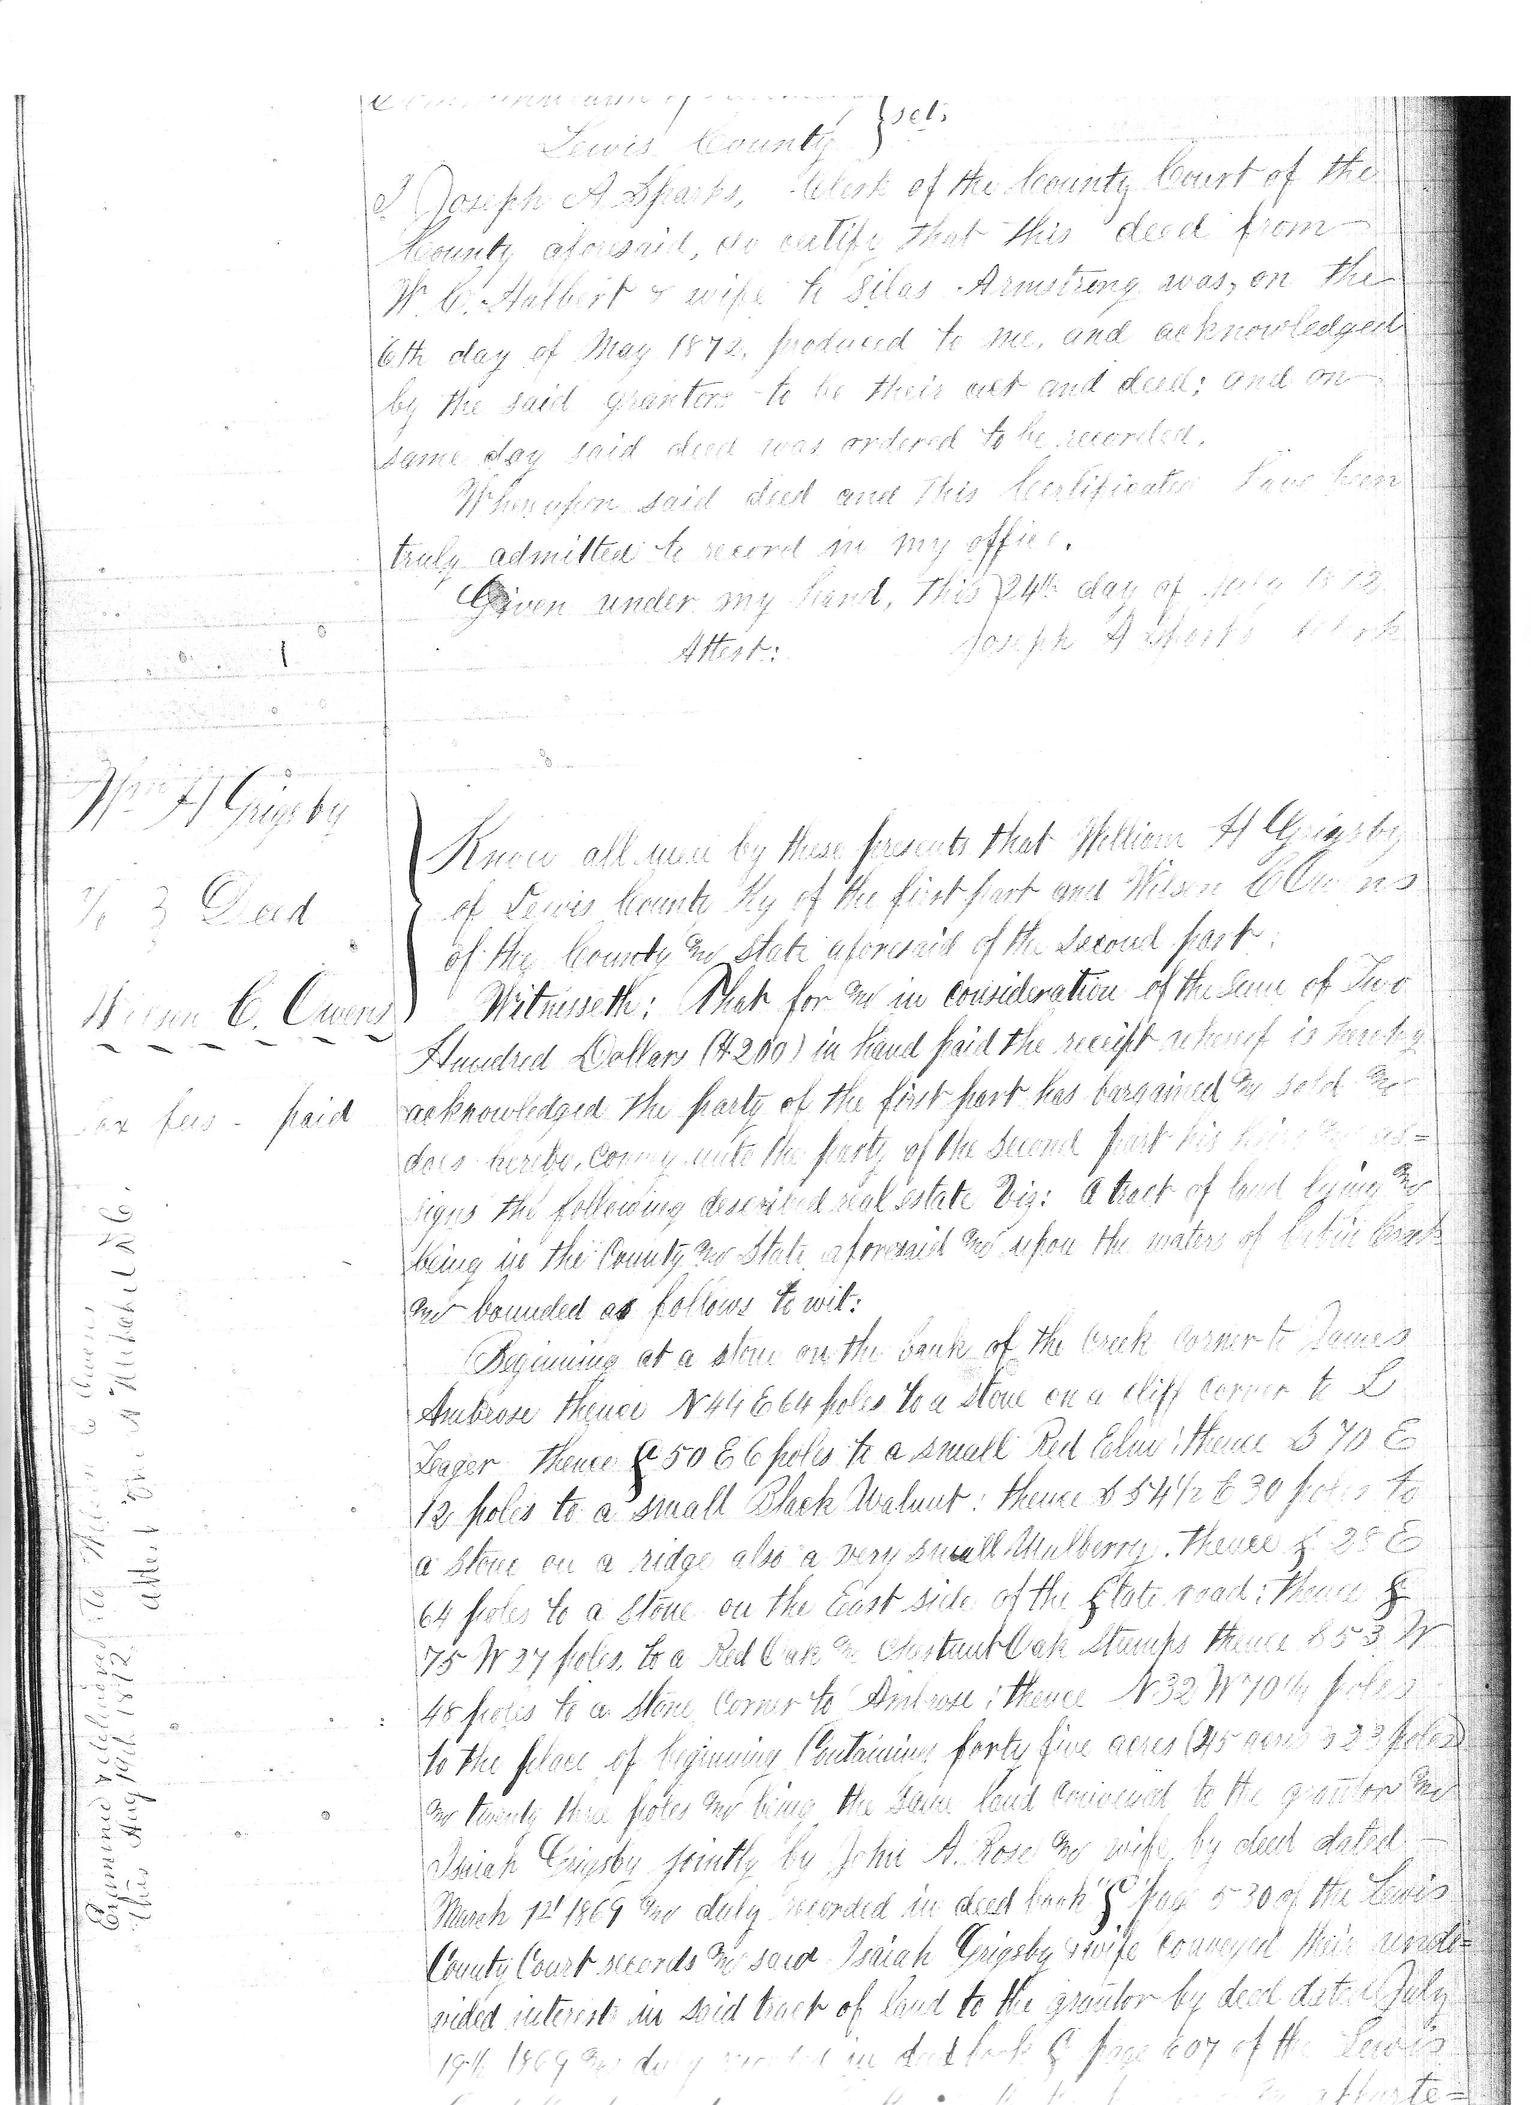 Lewis County } sct.
I Joseph A Sparks, Clerk of the County Court of the
County aforesaid, do certify that this deed from
W. C. Halbert & wife to Silas Armstrong was, on the
6th day of May 1872, produced to me, and acknowledged
by the said grantors to be their act and deed; and on
same day said deed was ordered to be recorded.
Whereupon said deed and this Certificate have been
truly admitted to record in my office.
Given under my hand, this 24th day of July 1872
Attest: Joseph A Sparks Clerk
Wm H Grigsby
To } Deed
Wilson C. Owens
Tax fees - paid
Know all men by these presents that William H Grigsby
of Lewis County Ky of the first part and Wilson C Owens
of the County and State aforesaid of the second part:
Witnesseth: That for and in consideration of the sum of Two
Hundred Dollars ($200) in hand paid the receipt whereof is hereby
acknowledged the party of the first part has bargained and sold and
does hereby convey unto the party of the second part his heirs and as=
signs the following described real estate Viz: A tract of land lying and
being in the County and State aforesaid and upon the waters of Cabin Creek
and bounded as follows to wit:
Beginning at a stone on the bank of the Creek corner to James
Ambrose thence N44 E64 poles to a stone on a cliff corner to L
Teager thence S50 E6 poles to a small Red Elm; thence S70 E
12 poles to a small Black Walnut; thence S54½ E30 poles to
a stone on a ridge also a very small Mulberry. thence S 28 E
64 poles to a stone on the East side of the State road; thence S
75 W 27 poles, to a Red Oak and Chestnut Oak stumps thence S53 W
48 poles to a stone corner to Ambrose; thence N32 W70 poles
to the place of beginning Containing forty five acres (45 acres & 23 poles)
and twenty three poles and being the same land conveyed to the grantor and
Isaiah Grigsby jointly by John A. Rose and wife by deed dated
March 1st 1869 and duly recorded in deed book "S" page 530 of the Lewis
County Court records and said Isaiah Grigsby & wife conveyed their undi=
vided interests in said tract of land to the grantor by deed dated July
19th 1869 and duly recorded in deed book S page 607 of the Lewis
Examined & delivered to Wilson C Owens
this Aug 19th 1872
attest